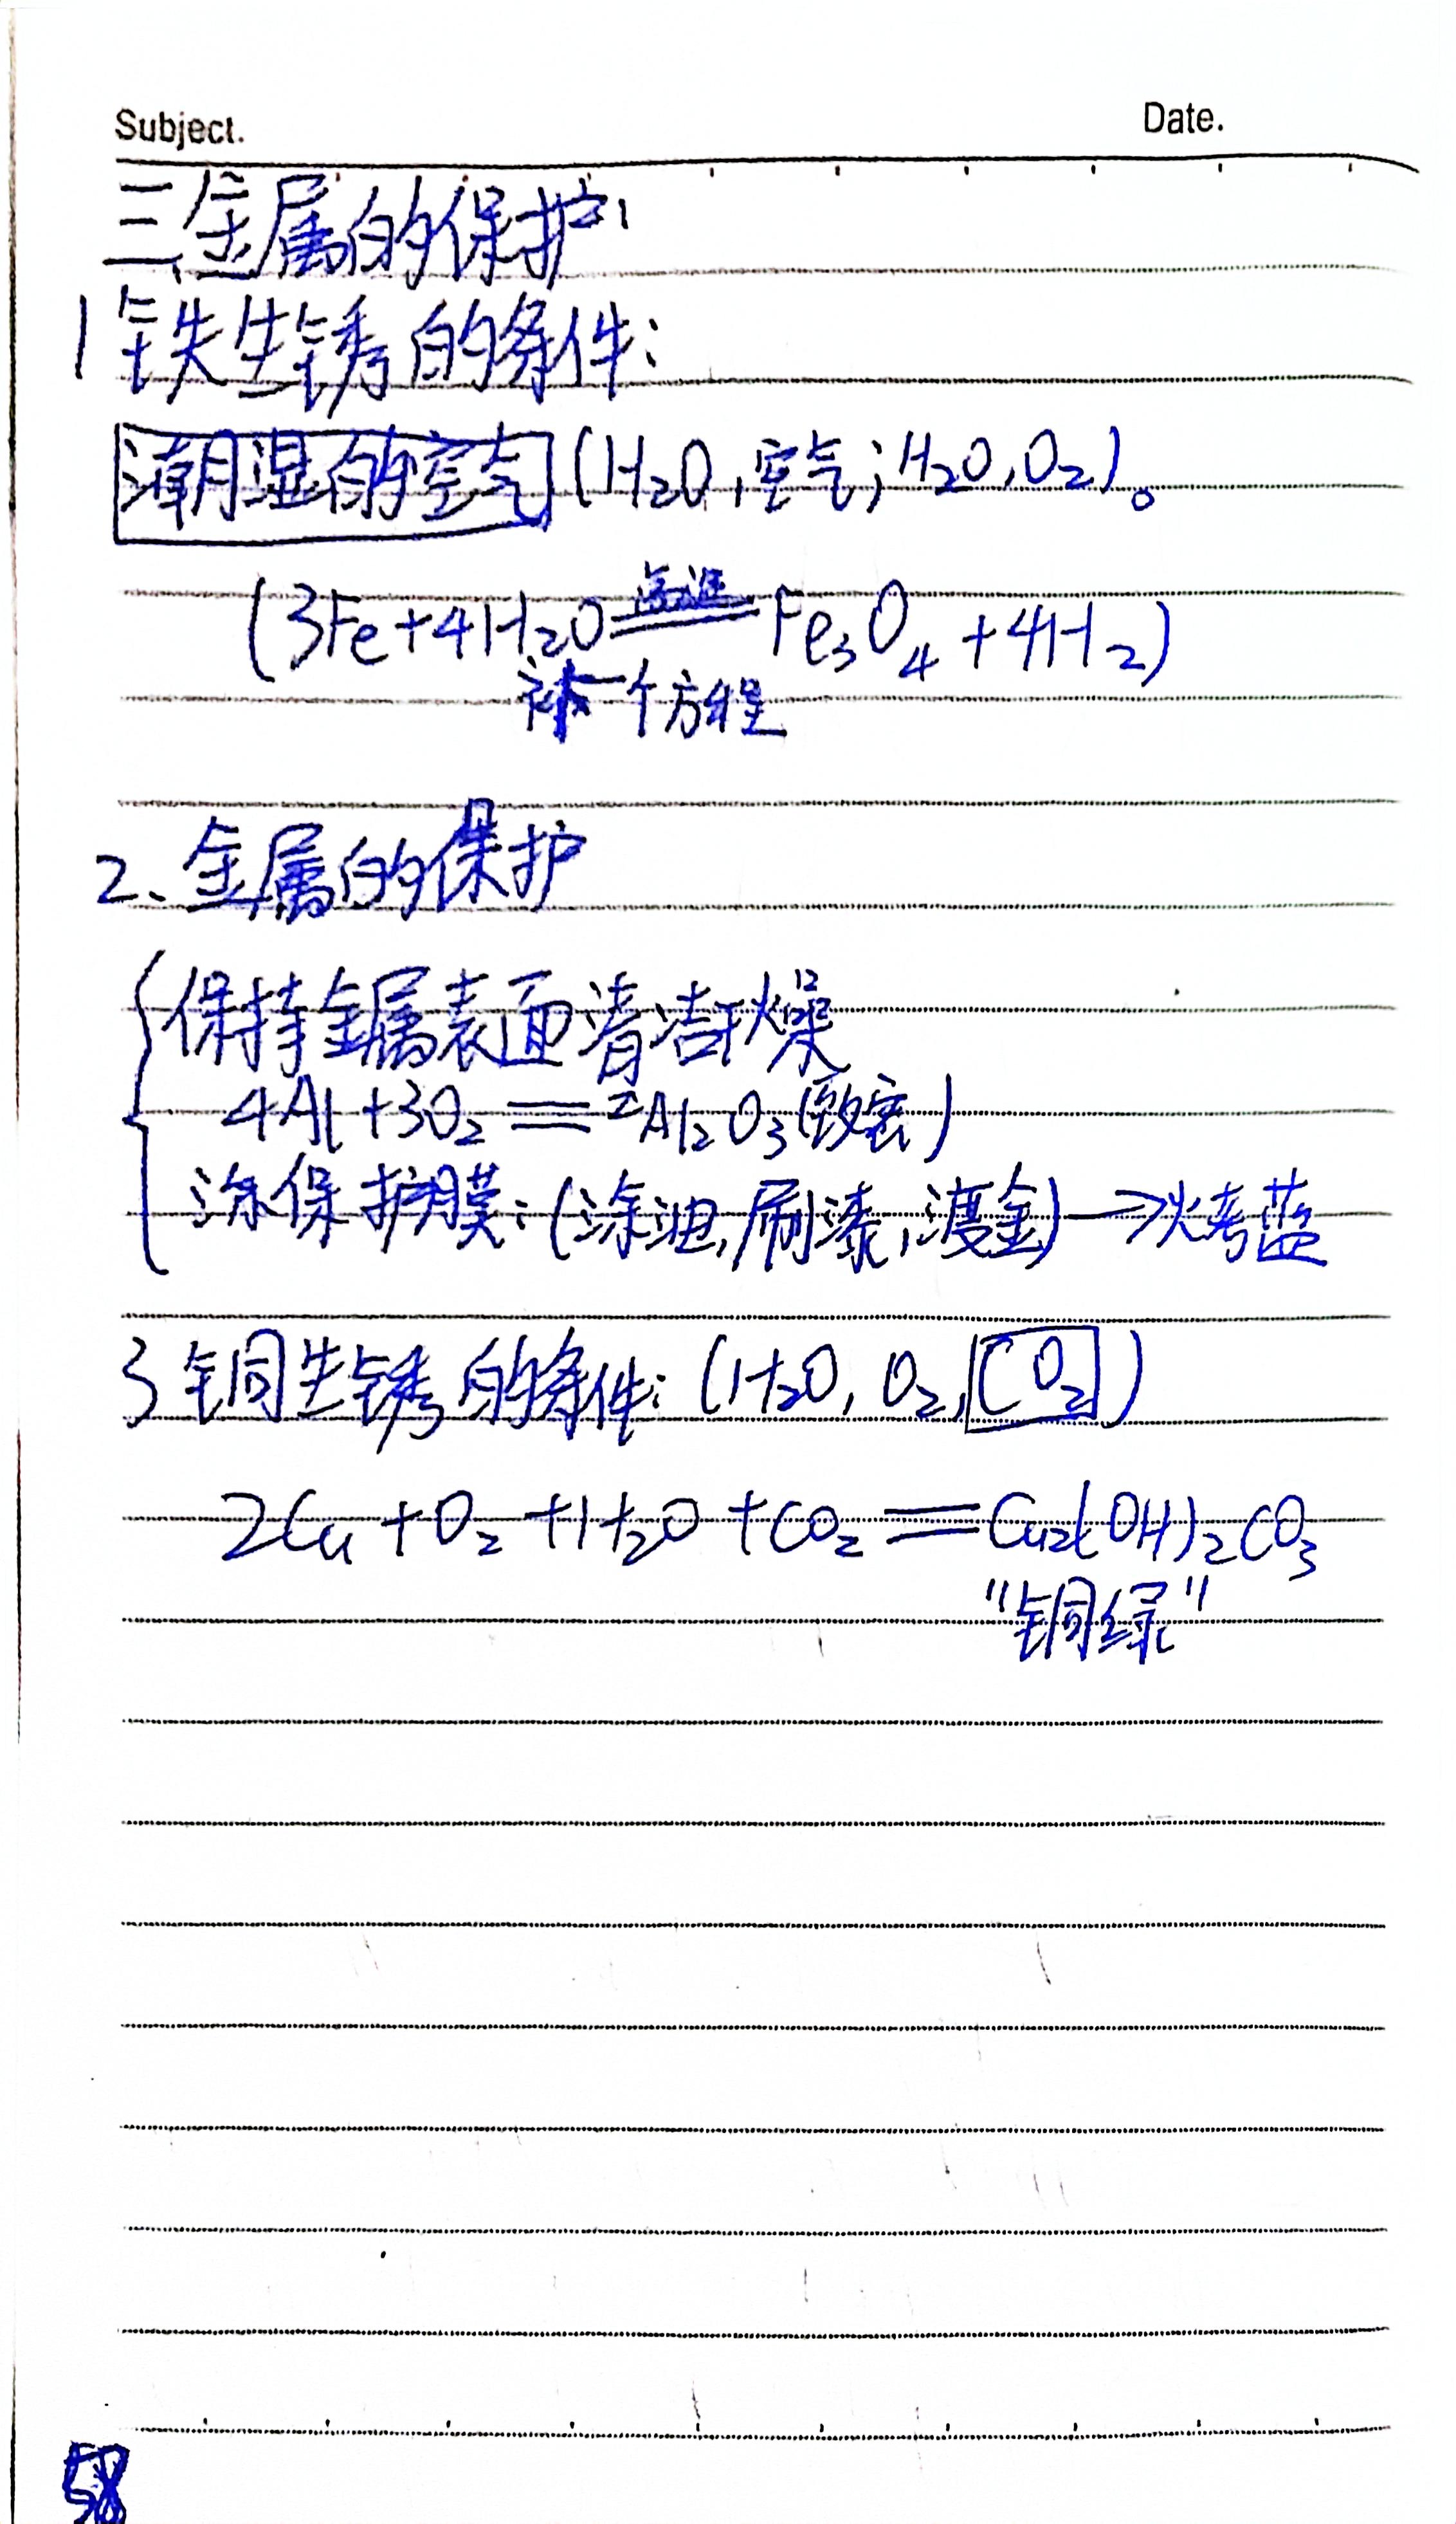 Subject.
Date.
三、金属的保护:
1 铁生锈的条件:
潮湿的空气 (H₂O,空气;H₂O,O₂)。
(3Fe+4H₂O 高温 Fe₃O₄+4H₂)
补一个方程
2、金属的保护
保持金属表面清洁干燥
4Al+3O₂══2Al₂O₃(致密)
涂保护膜:(涂油,刷漆,渡金)→烤蓝
3 铜生锈的条件:(H₂O,O₂,CO₂)
2Cu+O₂+H₂O+CO₂══Cu₂(OH)₂CO₃
"铜绿"
58